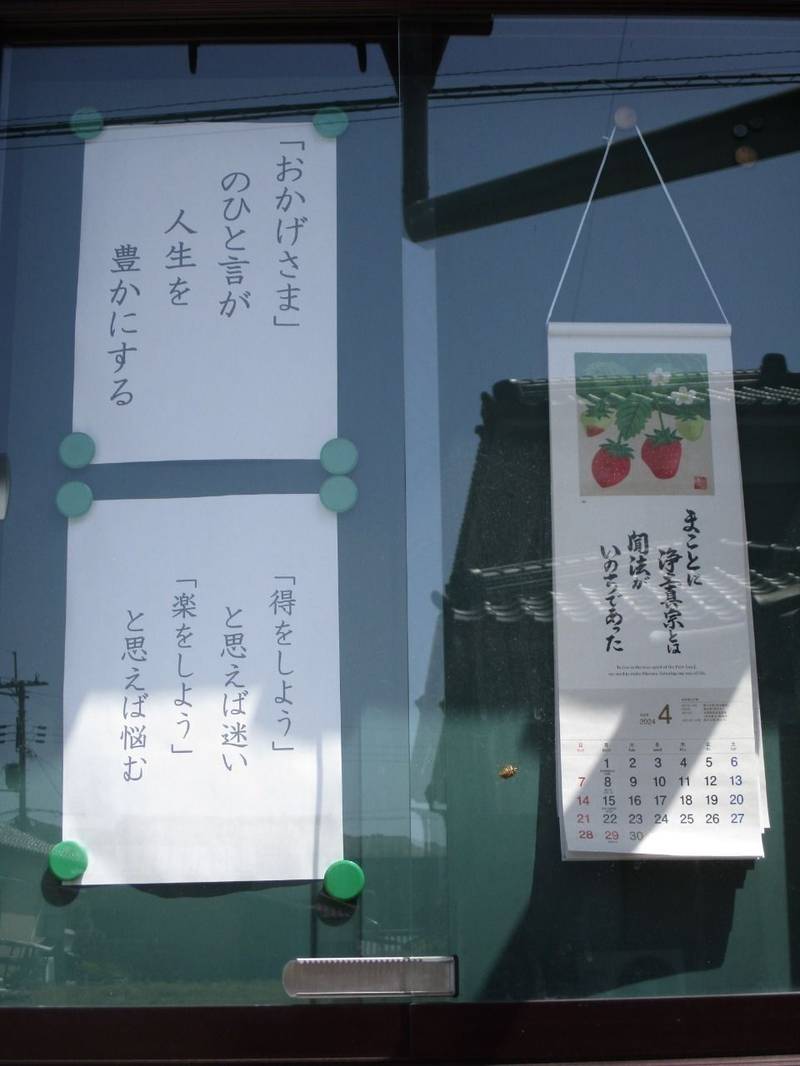 「おかげさま」
のひと言が
人生を
豊かにする
「得をしよう」
と思えば迷い
「楽をしよう」
と思えば悩む
まことに
浄土真宗とは
聞法が
いのちであった
2024 4
1 2 3 4 5 6
7 8 9 10 11 12 13
14 15 16 17 18 19 20
21 22 23 24 25 26 27
28 29 30